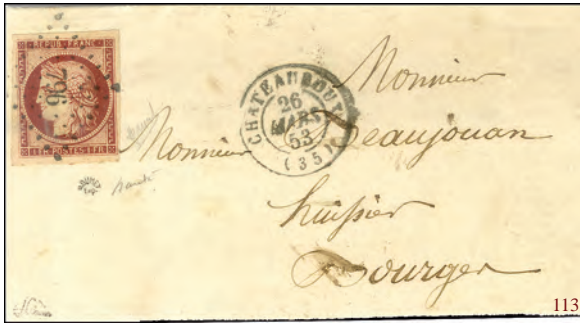 REPUB. FRANC.
796
1 FR. POSTES 1 FR.
CHATEAUROUX
26
MARS
53
(35)
Monsieur
Monsieur Beaujouan
huissier
Bourges
113